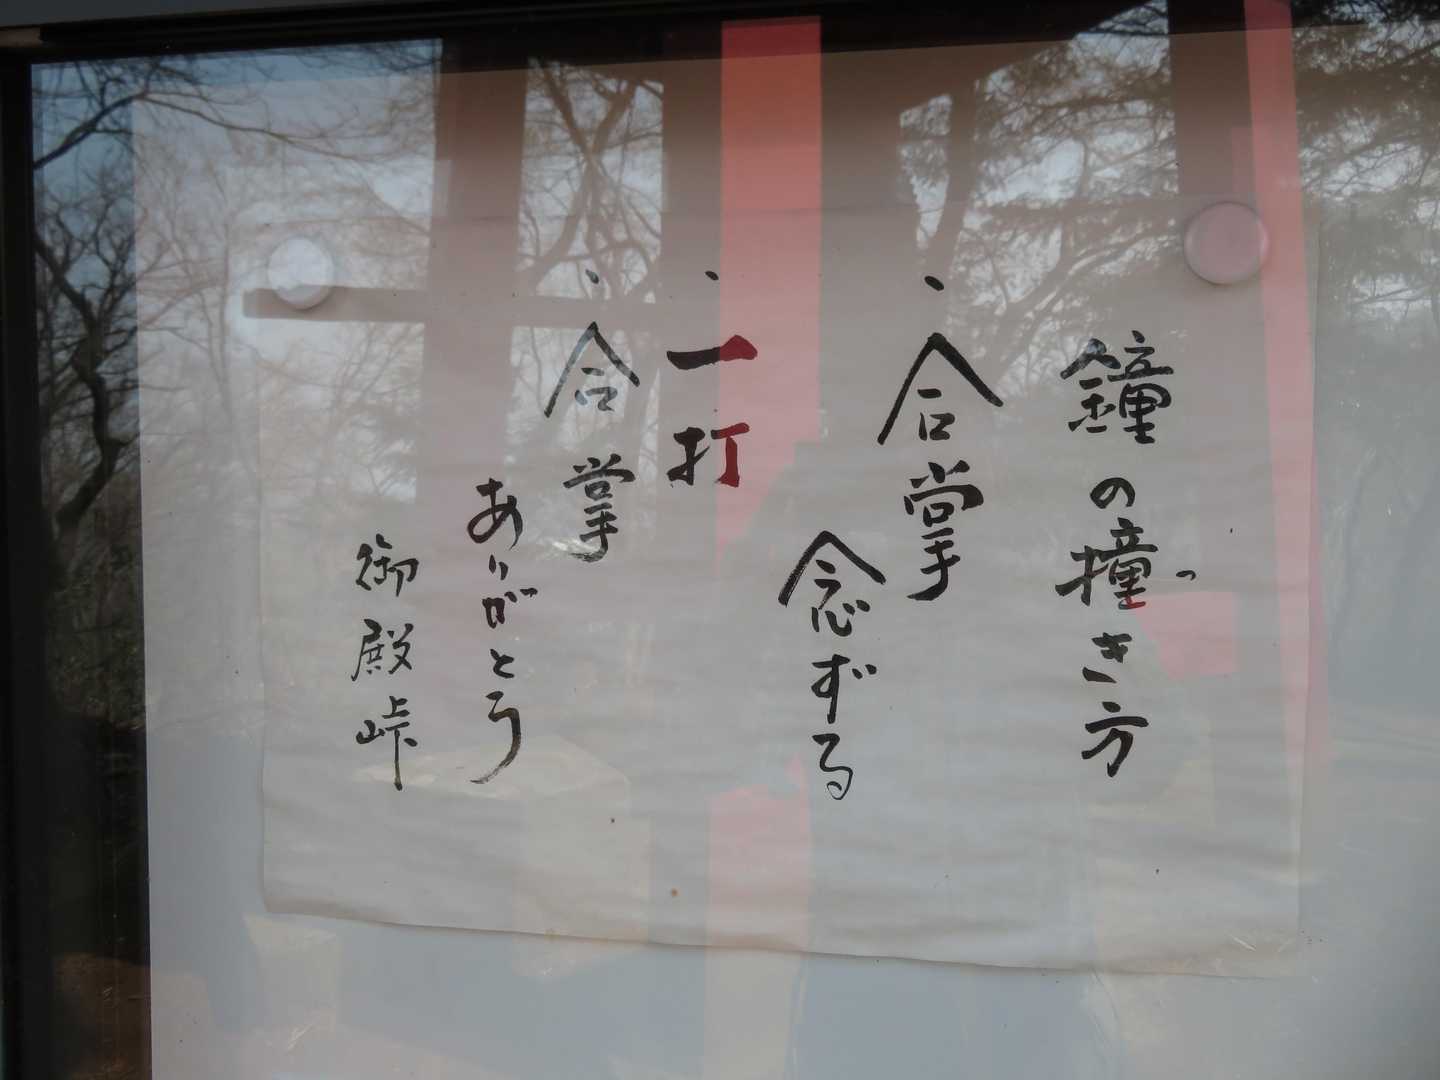 鐘の撞き方
・合掌
念ずる
・一打
・合掌
ありがとう
御殿峠